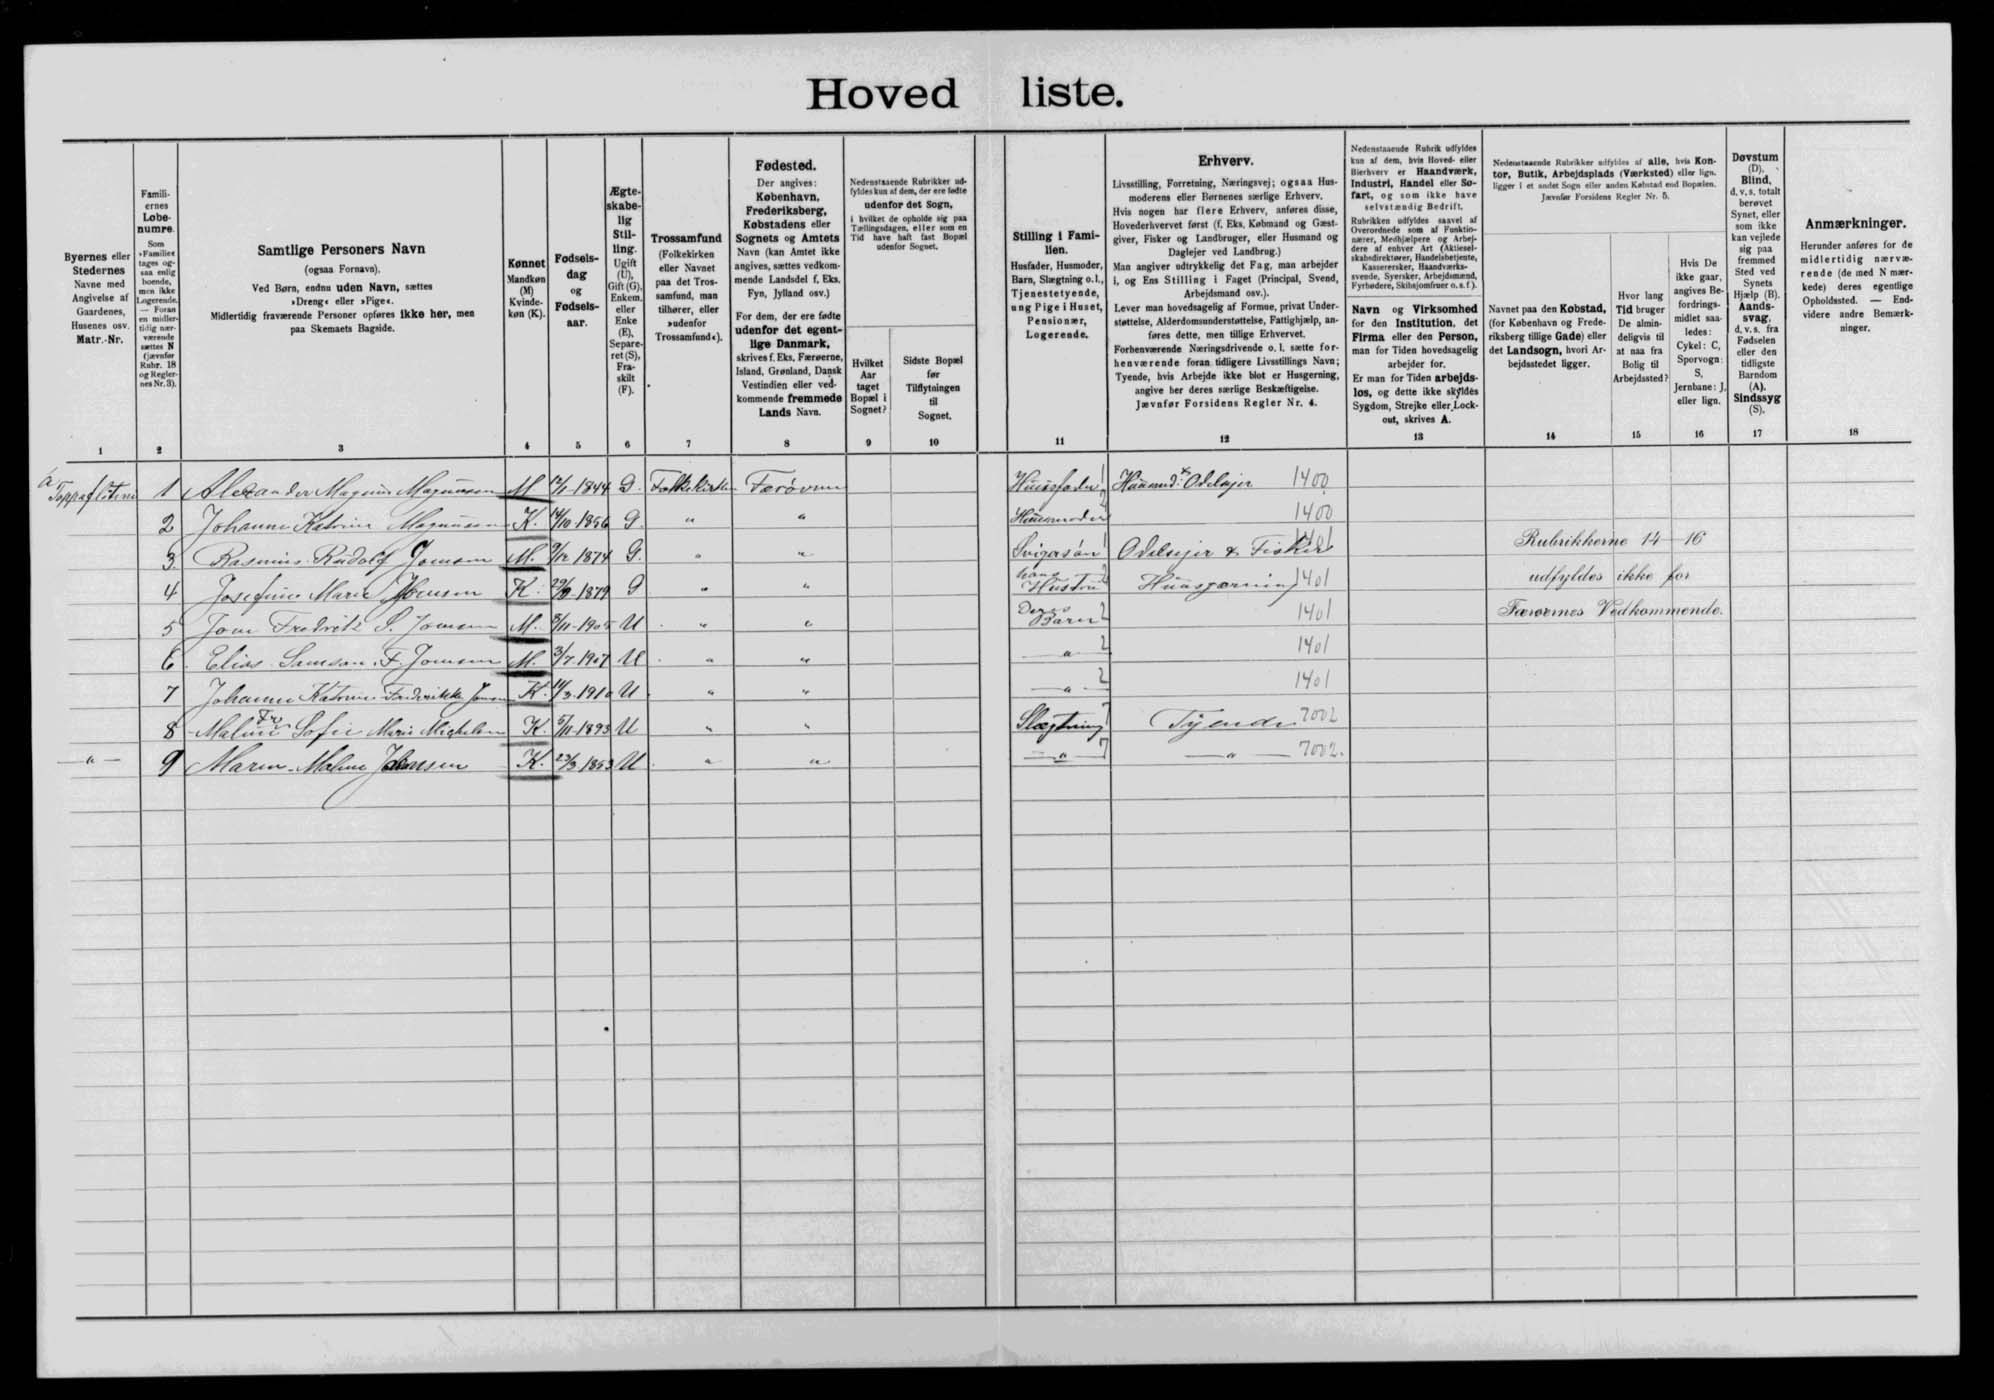 Hovedliste.
Byernes eller Stedernes Navne med Angivelse af Gaardenes, Husenes osv. Matr.-Nr.
Familiernes Løbenumre. Som »Familie« tages ogsaa enlig boende, men ikke Logerende. — Foran en midlertidig nærværende sættes N (jævnfør Rubr. 18 og Reglernes Nr. 3).
Samtlige Personers Navn
(ogsaa Fornavn).
Ved Børn, endnu uden Navn, sættes
»Dreng« eller »Pige«.
Midlertidig fraværende Personer opføres ikke her, men
paa Skemaets Bagside.
Kønnet Mandkøn (M) Kvindekøn (K).
Fødselsdag og Fødselsaar.
Ægteskabelig Stilling. Ugift (U), Gift (G), Enkem. eller Enke (E), Separeret (S), Fraskilt (F).
Trossamfund (Folkekirken eller Navnet paa det Trossamfund, man tilhører, eller »udenfor Trossamfund«).
Fødested.
Der angives: København, Frederiksberg, Købstadens eller Sognets og Amtets Navn (kan Amtet ikke angives, sættes vedkommende Landsdel f. Eks. Fyn, Jylland osv.)
For dem, der ere fødte udenfor det egentlige Danmark, skrives f. Eks. Færøerne, Island, Grønland, Dansk Vestindien eller vedkommende fremmede Lands Navn.
Nedenstaaende Rubrikker udfyldes kun af dem, der ere fødte udenfor det Sogn, i hvilket de opholde sig paa Tællingsdagen, eller som en Tid have haft fast Bopæl udenfor Sognet.
Hvilket Aar taget Bopæl i Sognet?
Sidste Bopæl før Tilflytningen til Sognet.
Stilling i Familien.
Husfader, Husmoder, Barn, Slægtning o. l., Tjenestetyende, ung Pige i Huset, Pensionær, Logerende.
Erhverv.
Livsstilling, Forretning, Næringsvej; ogsaa Husmoderens eller Børnenes særlige Erhverv.
Hvis nogen har flere Erhverv, anføres disse, Hovederhvervet først (f. Eks. Købmand og Gæstgiver, Fisker og Landbruger, eller Husmand og Daglejer ved Landbrug.)
Man angiver udtrykkelig det Fag, man arbejder i, og Ens Stilling i Faget (Principal, Svend, Arbejdsmand osv.).
Lever man hovedsagelig af Formue, privat Understøttelse, Alderdomsunderstøttelse, Fattighjælp, anføres dette, men tillige Erhvervet.
Forhenværende Næringsdrivende o. l. sætte forhenværende foran tidligere Livsstillings Navn; Tyende, hvis Arbejde ikke blot er Husgerning, angive her deres særlige Beskæftigelse.
Jævnfør Forsidens Regler Nr. 4.
Nedenstaaende Rubrik udfyldes kun af dem, hvis Hoved- eller Bierhverv er Haandværk, Industri, Handel eller Søfart, og som ikke have selvstændig Bedrift.
Rubrikken udfyldes saavel af Overordnede som af Funktionærer, Medhjælpere og Arbejdere af enhver Art (Aktieselskabsdirektører, Handelsbetjente, Kasserersker, Haandværkssvende, Syersker, Arbejdsmænd, Fyrbødere, Skibsjomfruer o. s. f.).
Navn og Virksomhed for den Institution, det Firma eller den Person, man for Tiden hovedsagelig arbejder for.
Er man for Tiden arbejdsløs, og dette ikke skyldes Sygdom, Strejke eller Lockout, skrives A.
Nedenstaaende Rubrikker udfyldes af alle, hvis Kontor, Butik, Arbejdsplads (Værksted) eller lign. ligger i et andet Sogn eller anden Købstad end Bopælen.
Jævnfør Forsidens Regler Nr. 5.
Navnet paa den Købstad, (for København og Frederiksberg tillige Gade) eller det Landsogn, hvori Arbejdsstedet ligger.
Hvor lang Tid bruger De almindeligvis til at naa fra Bolig til Arbejdssted?
Hvis De ikke gaar, angives Befordringsmidlet saaledes: Cykel: C, Sporvogn: S, Jernbane: J, eller lign.
Døvstum (D). Blind, d. v. s. totalt berøvet Synet, eller som ikke kan vejlede sig paa fremmed Sted ved Synets Hjælp (B). Aandssvag, d. v. s. fra Fødselen eller den tidligste Barndom (A). Sindssyg (S).
Anmærkninger.
Herunder anføres for de midlertidig nærværende (de med N mærkede) deres egentlige Opholdssted. — Endvidere andre Bemærkninger.
1 2 3 4 5 6 7 8 9 10 11 12 13 14 15 16 17 18
1 Alexander Magnus Magnussen M. 1844 G. Folkekirken Færøerne Huusfader 1 Huusmd. Odelsejer 1400
2 Johanne Katrine Magnussen K. 14/10-1856 G. " " Huusmoder 2 1400
3 Rasmus Rudolf Joensen M. 9/12 1874 G. " " Svigersøn 1 Odelsejer & Fisker 1401 Rubrikkerne 14-16
4 Josefine Marie Joensen K. 1879 G " " hans Hustru 2 Huusgerning 1401 udfyldes ikke for
5 Fredrik S. Joensen M. U " " Deres Barn 2 1401 Færøernes Vedkommende.
6 Elias Samson F. Joensen M. 3/7-1907 U " " " 2 1401
7 Johanne Katrine Fredrikke Joensen K. 14/3-1910 U " " " 2 1401
8 Maline Sofie Marie Mickelsen K. 5/11-1893 U " " Slægtning 7 Tyende 7002
" 9 Maren Maline K. 23/3 1853 U " " " 7 " 7002.